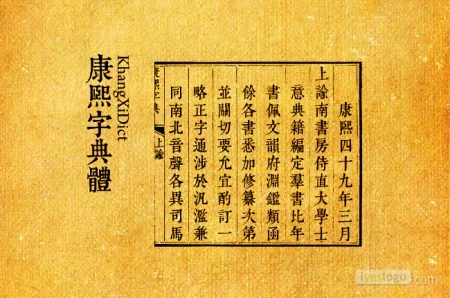 康熙字典體
KhangXiDict
康熙四十九年三月
上諭南書房侍直大學士
意典籍編定羣書比年
書佩文韻府淵鑑類函
餘各書悉加修纂次第
並關切要允宜酌訂一
略正字通涉於汎濫兼
同南北音聲各異司馬
康熙字典
上諭
iyeslogo.com